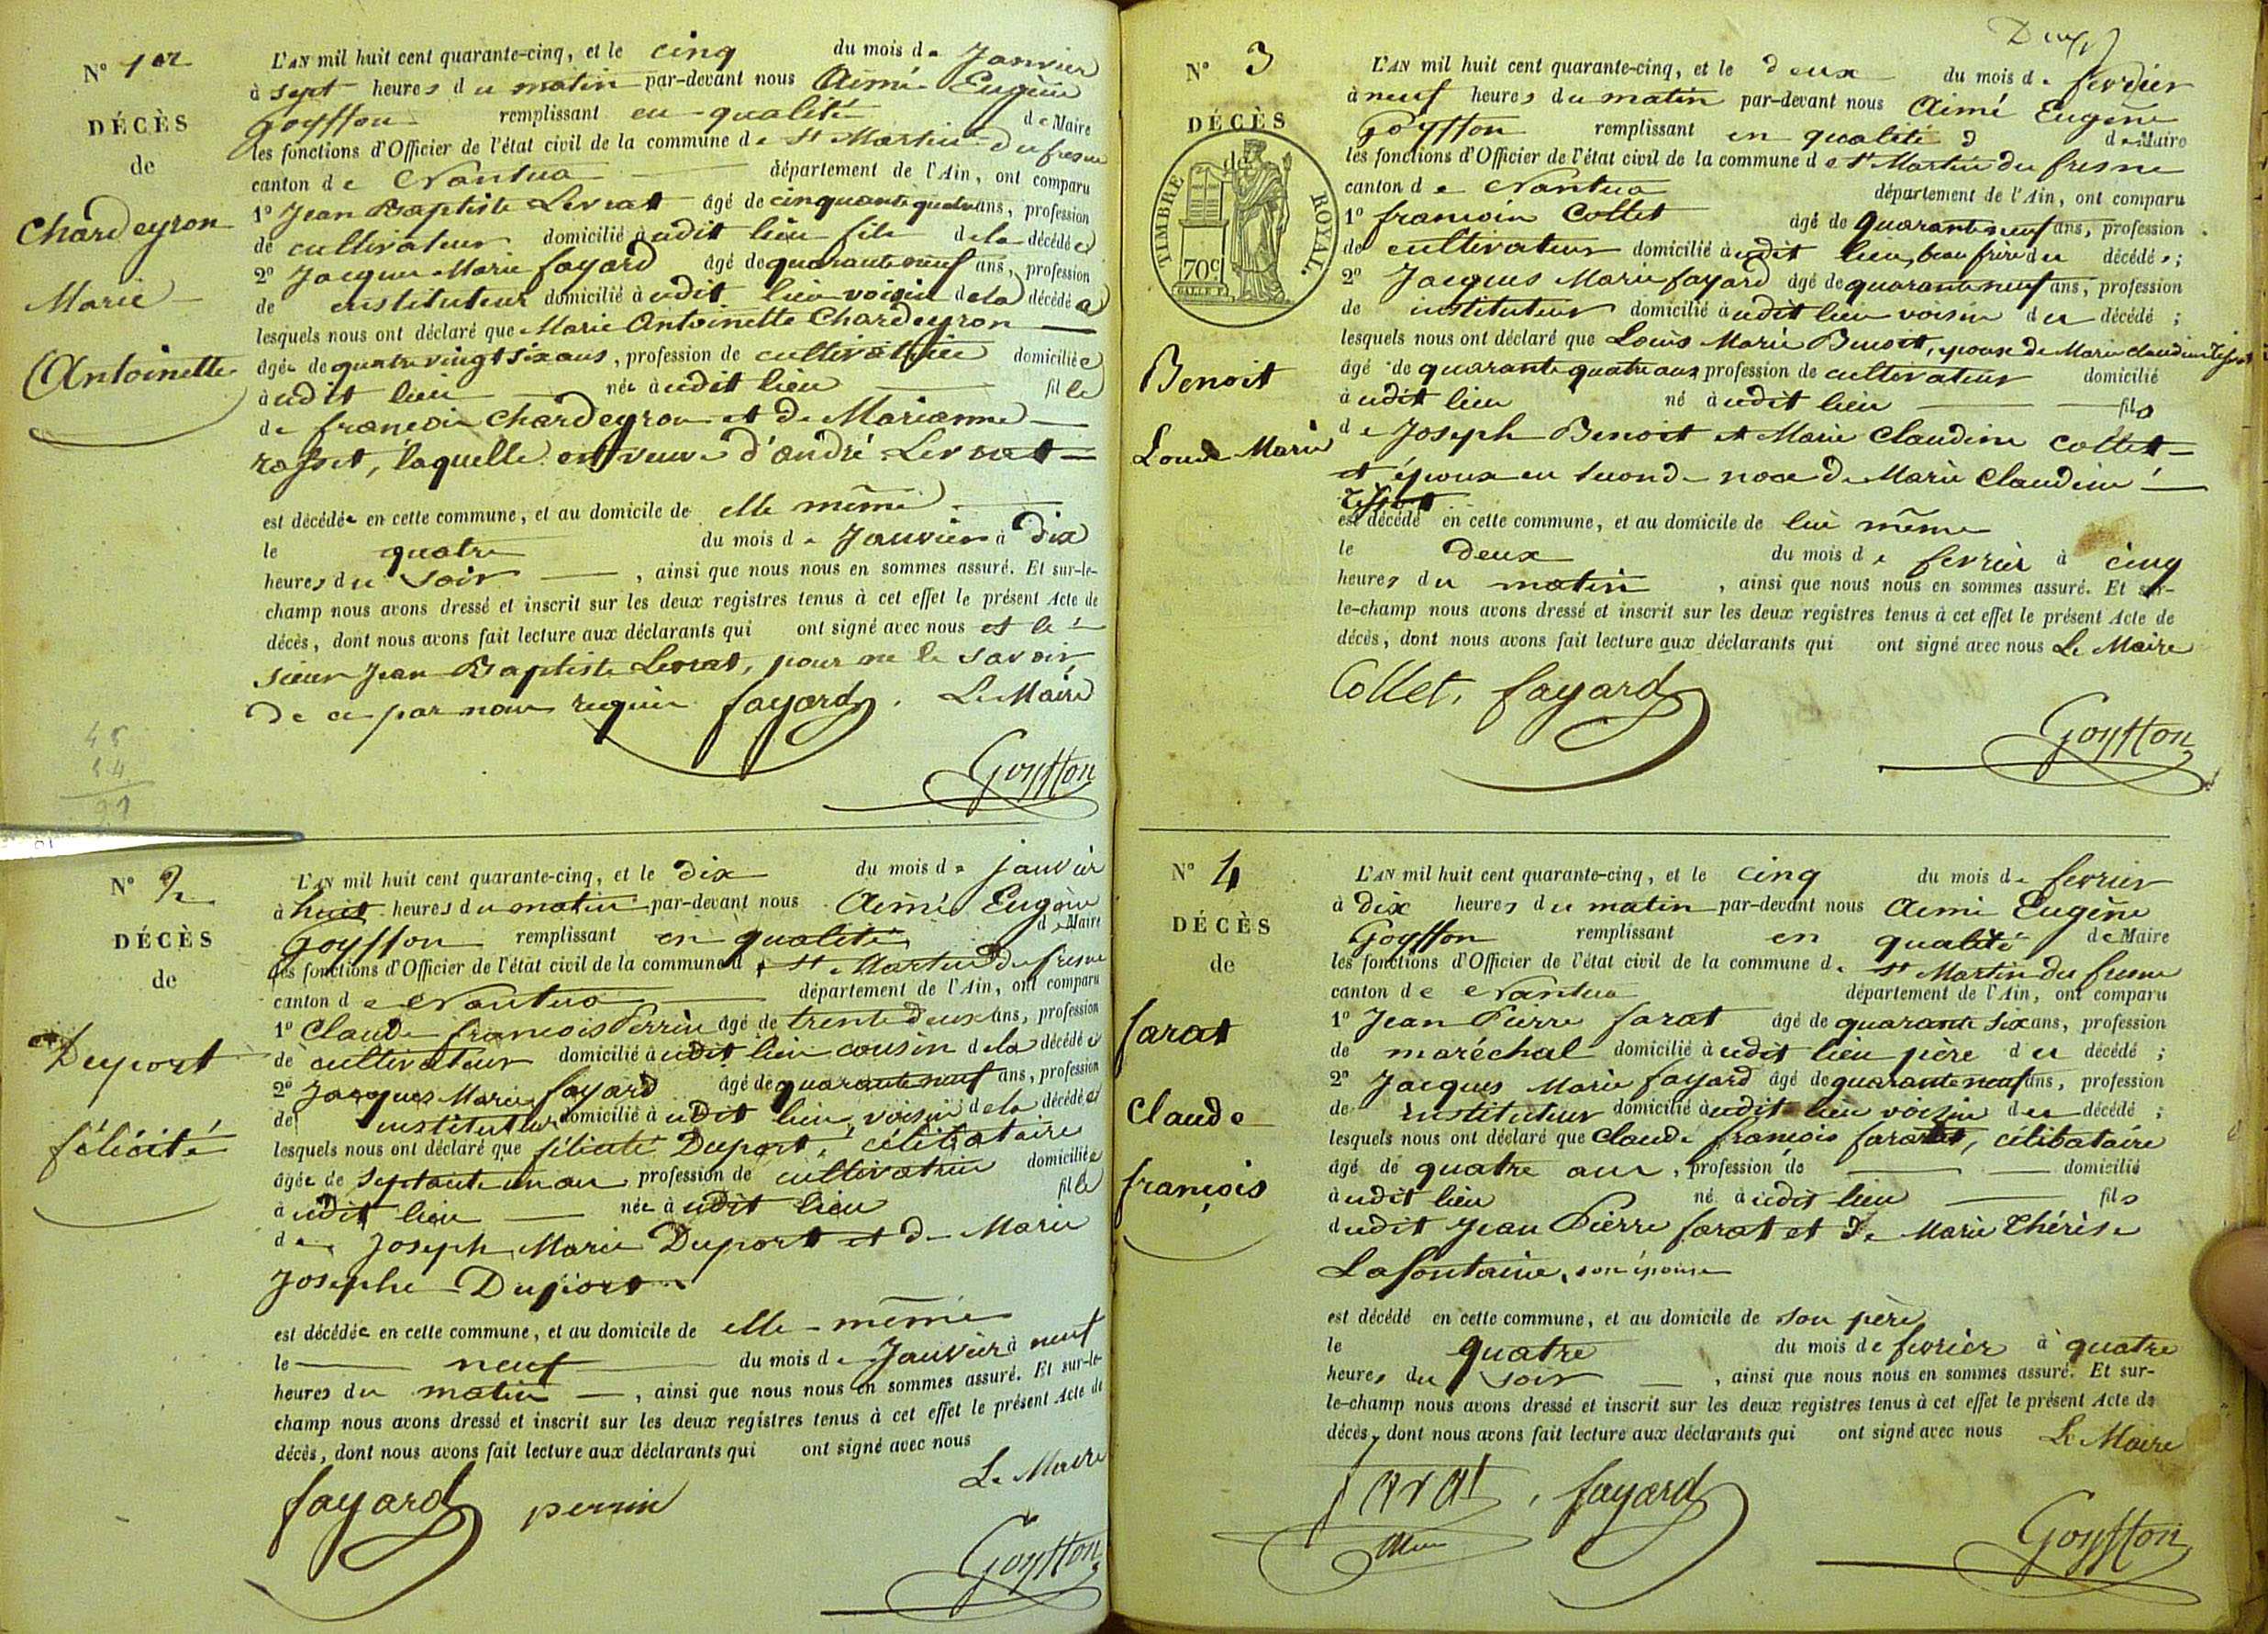 N° 1er
DÉCÈS
de
Chardeyron
Marie
Antoinette
L'AN mil huit cent quarante-cinq, et le cinq du mois de Janvier
à sept heures du matin par-devant nous Aimé Eugène
Goyffon remplissant en qualité de Maire
les fonctions d'Officier de l'état civil de la commune de St Martin du fresne
canton de Nantua département de l'Ain, ont comparu
1° Jean Baptiste Levrat âgé de cinquante quatre ans, profession
de cultivateur domicilié àudit lieu fils de la décédée
2° Jacques Marie fayard âgé de quarante neuf ans, profession
de instituteur domicilié àudit lieu voisin de la décédée
lesquels nous ont déclaré que Marie Antoinette Chardeyron
âgée de quatre vingt six ans, profession de cultivatrice domiciliée
àudit lieu née àudit lieu fille
de françois Chardeyron et de Marianne
rosset, laquelle est veuve d'andré Levrat
est décédée en cette commune, et au domicile de elle même
le quatre du mois de Janvier à dix
heures du soir, ainsi que nous nous en sommes assuré. Et sur-le-
champ nous avons dressé et inscrit sur les deux registres tenus à cet effet le présent Acte de
décès, dont nous avons fait lecture aux déclarants qui ont signé avec nous et le
sieur Jean Baptiste Levrat, pour ne le savoir
de ce par nous requis fayard. Le Maire
Goyffon
N° 2
DÉCÈS
de
Duport
félicité
L'AN mil huit cent quarante-cinq, et le dix du mois de janvier
à huit heures du matin par-devant nous Aimé Eugène
Goyffon remplissant en qualité de Maire
les fonctions d'Officier de l'état civil de la commune d St Martin du fresne
canton de Nantua département de l'Ain, ont comparu
1° Claude françois Perrin âgé de trente deux ans, profession
de cultivateur domicilié àudit lieu cousin de la décédée
2° Jacques Marie fayard âgé de quarante neuf ans, profession
de instituteur domicilié àudit lieu, voisin de la décédée
lesquels nous ont déclaré que félicité Duport, célibataire
âgée de septante un an profession de cultivatrice domiciliée
àudit lieu née àudit lieu fille
de Joseph Marie Duport et de Marie
Josephe Duport
est décédée en cette commune, et au domicile de elle-même
le neuf du mois de Janvier à neuf
heures du matin, ainsi que nous nous en sommes assuré. Et sur-le-
champ nous avons dressé et inscrit sur les deux registres tenus à cet effet le présent Acte de
décès, dont nous avons fait lecture aux déclarants qui ont signé avec nous
Le Maire
fayard perrin
Goyffon
N° 3
DÉCÈS
de
TIMBRE ROYAL.
70c
Benoit
Louis Marie
L'AN mil huit cent quarante-cinq, et le deux du mois de fevrier
à neuf heures du matin par-devant nous Aimé Eugène
Goyffon remplissant en qualité d de Maire
les fonctions d'Officier de l'état civil de la commune de St Martin du fresne
canton de Nantua département de l'Ain, ont comparu
1° françois Collet âgé de quarante neuf ans, profession
de cultivateur domicilié àudit lieu, beau frère du décédé;
2° Jacques Marie fayard âgé de quarante neuf ans, profession
de instituteur domicilié àudit lieu voisin du décédé;
lesquels nous ont déclaré que Louis Marie Benoit, epoux de Marie claudine
âgé de quarante quatre ans profession de cultivateur domicilié
àudit lieu né àudit lieu fils
de Joseph Benoit et Marie Claudine Collet
et époux en second noce de Marie Claudine
est décédé en cette commune, et au domicile de lui même
le deux du mois de fevrier à cinq
heures du matin, ainsi que nous nous en sommes assuré. Et sur-
le-champ nous avons dressé et inscrit sur les deux registres tenus à cet effet le présent Acte de
décès, dont nous avons fait lecture aux déclarants qui ont signé avec nous Le Maire
Collet, fayard
Goyffon
N° 4
DÉCÈS
de
farat
Claude
françois
L'AN mil huit cent quarante-cinq, et le cinq du mois de fevrier
à dix heures du matin par-devant nous Aimé Eugène
Goyffon remplissant en qualité de Maire
les fonctions d'Officier de l'état civil de la commune de St Martin du fresne
canton de Nantua département de l'Ain, ont comparu
1° Jean Pierre farat âgé de quarante six ans, profession
de maréchal domicilié àudit lieu père du décédé;
2° Jacques Marie fayard âgé de quarante neuf ans, profession
de instituteur domicilié àudit lieu voisin du décédé;
lesquels nous ont déclaré que Claude françois farat, célibataire
âgé de quatre ans, profession de domicilié
àudit lieu né àudit lieu fils
dudit Jean Pierre farat et de Marie Thérèse
Lafontaine, son épouse
est décédé en cette commune, et au domicile de son père
le quatre du mois de fevrier à quatre
heures du soir, ainsi que nous nous en sommes assuré. Et sur-
le-champ nous avons dressé et inscrit sur les deux registres tenus à cet effet le présent Acte de
décès, dont nous avons fait lecture aux déclarants qui ont signé avec nous Le Maire
farat, fayard
Goyffon